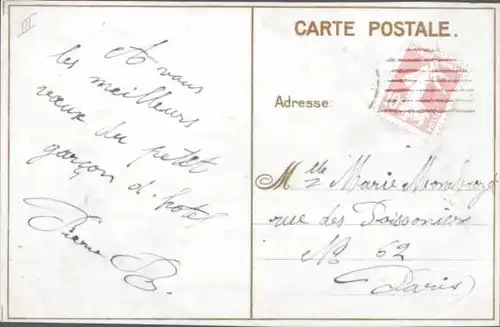 III
A vous
les meilleurs
vœux du petit
garçon d'hotel
Pierre B.
CARTE POSTALE.
Adresse:
Mlle Marie
rue des Poissonière
No 62
Paris